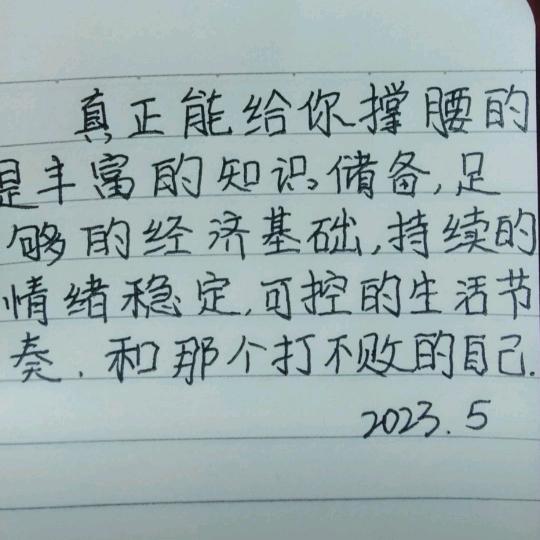 真正能给你撑腰的
是丰富的知识储备,足
够的经济基础,持续的
情绪稳定,可控的生活节
奏.和那个打不败的自己.
2023.5